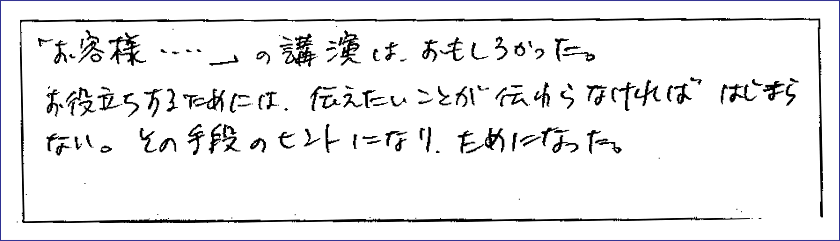 「お客様‥‥」の講演は、おもしろかった。
お役立ちするためには、伝えたいことが伝わらなければはじまら
ない。その手段のヒントになり、ためになった。